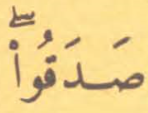 صَدَقُواْۖ